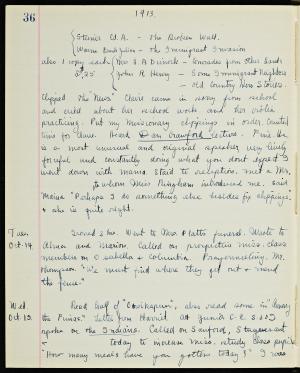 36
1913.
Steiner Ed. A. - The Broken Wall.
Warne Frank Julian - The Immigrant Invasion
also 1 copy each { Mrs. - Comrades from Other Lands
$ .25 John R. Henry - Some Immigrant Neighbors
- Old Country Hero Stories.
Clipped the "News". Claire came in from school
and cried about her school work and her violin
practising. Put my Missionary clippings in order. Counted
time for Claire. Heard Dan Crawford lecture. Fine. He
is a most unusual and original speaker, very lively
forceful and constantly doing what you don't expect. I
went down with mama. Staid to reception. Met a Mr.
to whom Miss Bingham introduced me. Said
mama "Perhaps I do something else besides fix clippings."
& she is quite right.
Tues. Wound 2 hrs. Went to Mrs Platts funeral. Wrote to
Oct. 14. Alma and Marion. Called on prospective miss. class
members on Isabella & Columbia. Mr.
Thompson. "We must find where they get out & mend
the fence."
Wed. Read half of " ", also read some in "Among
Oct. 15. the ". Letter from Harriet. At Junior C. E. S & J
spoke on the Indians. Called on Sanford,
& today to increase Miss. study class pupils
"How many meals have you gotten today?" I was